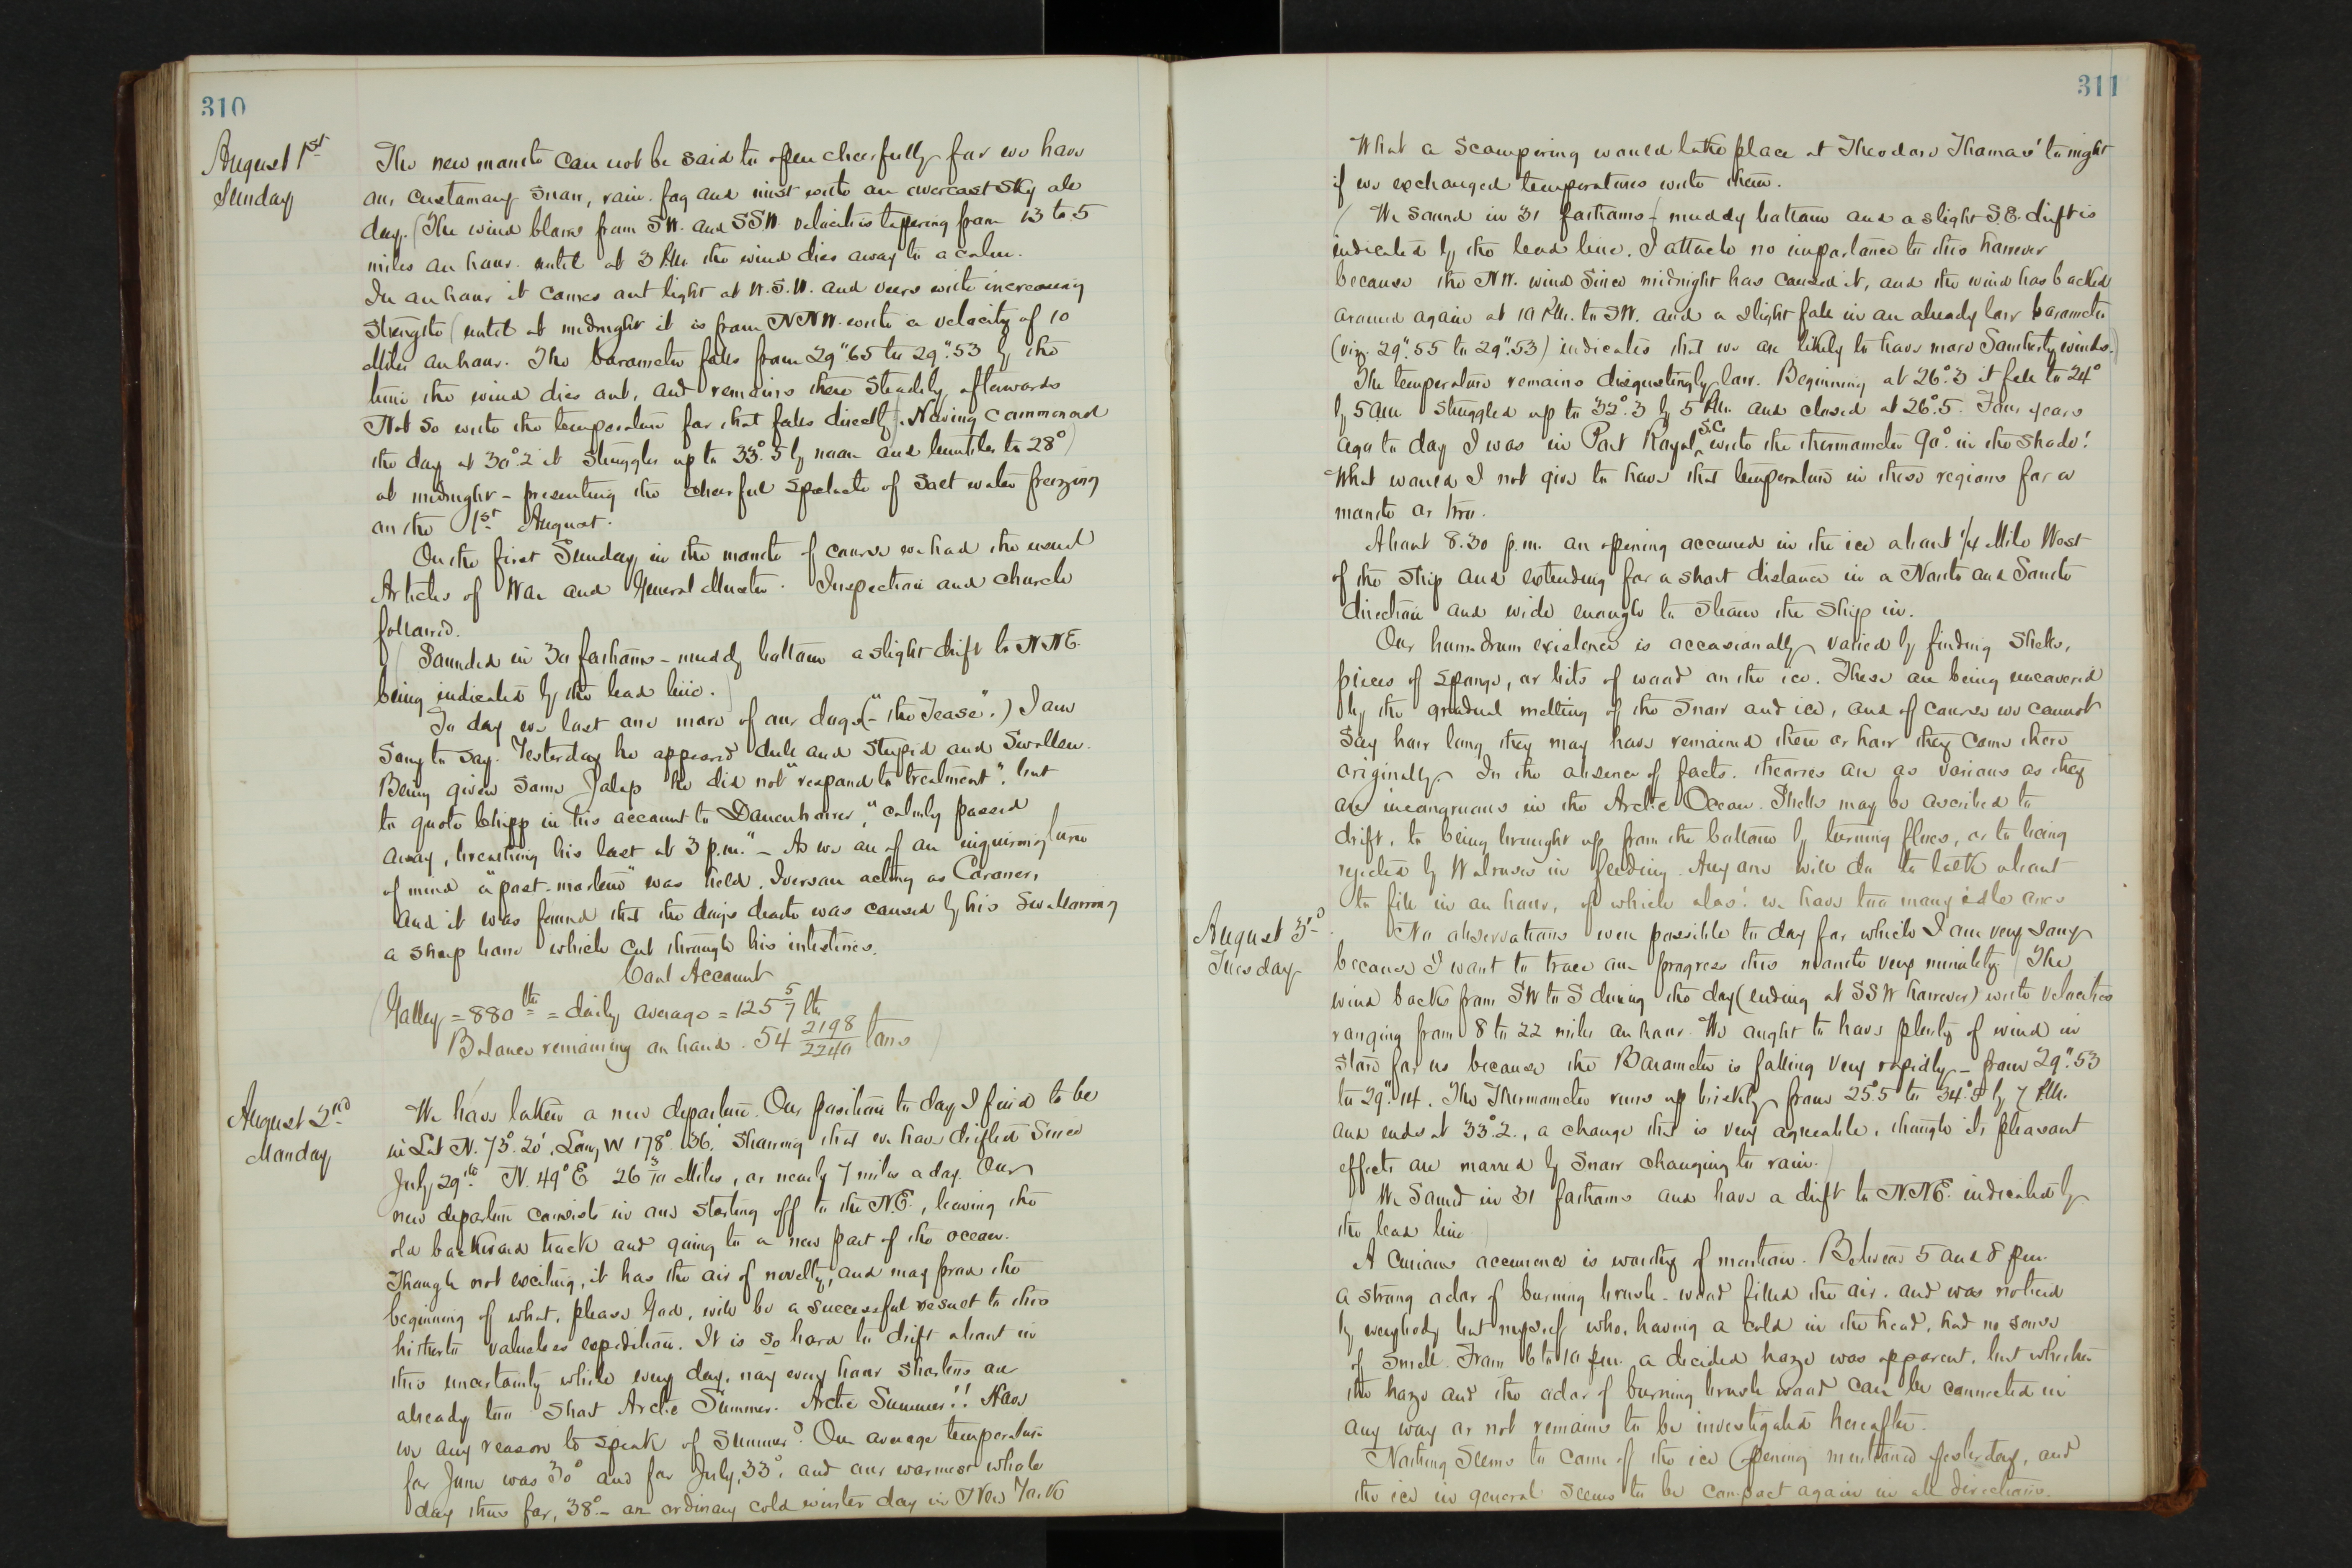 310
August 1st
Sunday
The new month can not be said to open cheerfully for we have
our customary snow, rain, fog and mist with an overcast sky all
day. (The wind blows from SW. and SSW. velocities tapering from 13 to 5
miles an hour. until at 3 P.M. the wind dies away to a calm.
In an hour it comes out light at W.S.W. and veers with increasing
strength (until at midnight it is from NNW. with a velocity of 10
Miles an hour. The barometer falls from 29".65 to 29".53 by the
time the wind dies out, and remains there steadily afterwards
Not so with the temperature for that falls directly. Having commenced
the day at 30°.2 it struggles up to 33°.5 by noon and tumbles to 28°)
at midnight - presenting the cheerful spectacle of salt water freezing
on the 1st August.
On the first Sunday in the month of course we had the usual
Articles of War and General Muster. Inspection and church
followed.
(Sounded in 30 fathoms - muddy bottom a slight drift to NNE.
being indicated by the lead line.)
To day we lost one more of our dogs (-"the Tease".) I am
sorry to say. Yesterday he appeared dull and stupid and swollen.
Being given some Jalap he did not "respond to treatment", but
to quote Chipp in his account to Danenhower, "calmly passed
away, breathing his last at 3 p.m." - As we are of an inquiring turn
of mind a "post-mortem" was held, Iversen acting as Coroner,
and it was found that the dog's death was caused by his swallowing
a sharp bone which cut through his intestines.
Coal Account
(Galley = 880 lbs = daily average = 125 5/7 lbs
Balance remaining on hand. 54 2198/2240 tons)
August 2nd
Monday
We have taken a new departure. Our position to day I find to be
in Lat N. 73°.20', Long W 178° 36', showing that we have drifted since
July 29th N. 49° E 26 3/10 Miles, or nearly 7 miles a day. Our
new departure consists in our starting off to the N.E., leaving the
old backward track and going to a new part of the ocean.
Though not exciting, it has the air of novelty, and may prove the
beginning of what, please God, will be a successful result to this
hitherto valueless expedition. It is so hard to drift about in
this uncertainty while every day, nay every hour shortens our
already too short Arctic Summer. Arctic Summer!! Have
we any reason to speak of Summer? Our average temperature
for June was 30° and for July, 33°, and our warmest whole
day thus far, 38° - an ordinary cold winter day in New York
311
What a scampering would take place at Theodore Thomas' to night
if we exchanged temperatures with them.
(We sound in 31 fathoms - muddy bottom and a slight S.E. drift is
indicated by the lead line. I attach no importance to this however
because the NW. wind since midnight has caused it, and the wind has backed
around again at 10 P.M. to SW. and a slight fall in an already low barometer
(viz. 29".55 to 29".53) indicates that we are likely to have more Southerly winds.)
The temperature remains disgustingly low. Beginning at 26°.3 it fell to 24°
by 5 a.m. struggled up to 32°.3 by 5 P.M. and closed at 26°.5. Four years
ago to day I was in Port Royal, S.C. with the thermometer 90°. in the shade!
What would I not give to have that temperature in these regions for a
month or two.
About 8.30 p.m. an opening occurred in the ice about 1/4 Mile West
of the ship and extending for a short distance in a North and South
direction and wide enough to steam the ship in.
Our hum-drum existence is occasionally varied by finding shells,
pieces of sponge, or bits of wood on the ice. These are being uncovered
by the gradual melting of the snow and ice, and of course we cannot
say how long they may have remained there or how they came there
originally. In the absence of facts, theories are as various as they
are incongruous in the Arctic Ocean. Shells may be ascribed to
drift, to being brought up from the bottom by turning floes, or to being
rejected by Walruses in feeding. Any one will do to talk about
to fill in an hour, of which alas! we have too many idle ones
August 3d
Tuesday
No observations were possible to day for which I am very sorry
because I want to trace our progress this month very minutely. (The
wind backs from SW to S during the day (ending at SSW however) with velocities
ranging from 8 to 22 miles an hour. We ought to have plenty of wind in
store for us because the Barometer is falling very rapidly - from 29".53
to 29".14. The Thermometer runs up briskly from 25°.5 to 34°.5 by 7 P.M.
and ends at 33°.2., a change that is very agreeable, though its pleasant
effects are marred by snow changing to rain.)
(We sound in 31 fathoms and have a drift to N.NE. indicated by
the lead line)
A curious occurrence is worthy of mention. Between 5 and 8 p.m.
a strong odor of burning brush-wood filled the air, and was noticed
by everybody but myself who, having a cold in the head, had no sense
of smell. From 6 to 10 p.m. a decided haze was apparent, but whether
the haze and the odor of burning brush wood can be connected in
any way or not remains to be investigated hereafter.
Nothing seems to come of the ice opening mentioned yesterday, and
the ice in general seems to be compact again in all directions.